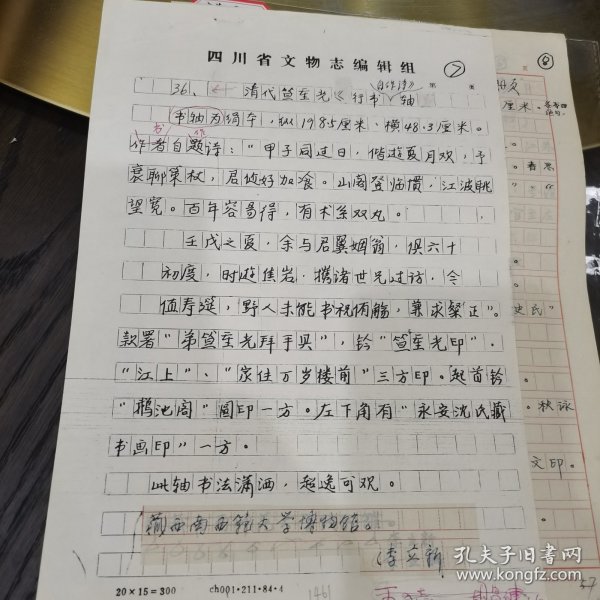 四川省文物志编辑组
⑦
36、清代笪重光《行书自作诗》轴
书轴为绢本,纵198.5厘米、横48.3厘米。
作者自题诗:“甲子同过日,偕游夏月欢,予
衰聊策杖,君健好加飡。山阁登临惯,江波眺
望宽。百年容易得,有术系双丸。
壬戌之夏,余与君翼姻翁,俱六十
初度,时游焦岩,携诸世兄过访,今
值寿筵,野人未能书祝侑觞,兼求粲正”。
款署“弟笪重光拜手具”,钤“笪重光印”、
“江上”、“家住万岁楼前”三方印。起首钤
“鹅池阁”圆印一方。左下角有“永安沈氏藏
书画印”一方。
此轴书法潇洒,超逸可观。
藏西南师范大学博物馆。
(李立新
20×15=300
ch001·211·84·4
1461
⑧
厘米。
史氏”
秋泳
文印。
37
孔夫子旧书网
www.kongfz.com